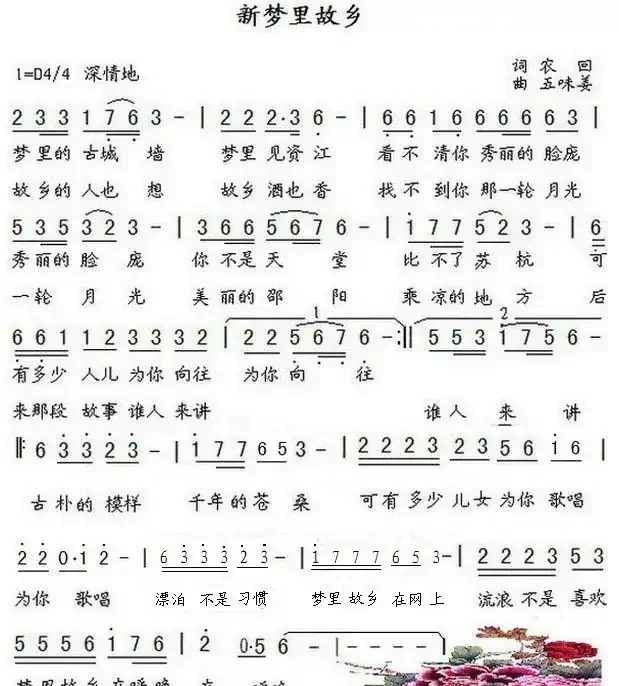 新梦里故乡
1=D4/4 深情地 词 农 回
曲 五味姜
2 3 3 1 7 6 3 - | 2 2 2·3 6 - | 6 6 1 6 6 6 6 6 3 |
梦里的 古城 墙 梦里 见资江 看不 清你 秀丽的 脸庞
故乡的 人也 想 故乡 酒也香 找不 到你 那一轮 月光
5 3 5 3 2 3 - | 3 6 6 5 6 7 6 - | 1 7 7 5 2 3 - | 6
秀丽的 脸 庞 你 不是天 堂 比 不了 苏 杭 可
一轮 月 光 美 丽的 邵 阳 乘 凉的 地 方 后
6 6 1 1 2 3 3 3 3 2 | 1 2 2 5 6 7 6 - :|| 2 5 5 3 1 7 5 6 -
有多少 人儿 为你 向往 为你 向 往
来那段 故事 谁人 来讲 谁人 来 讲
||: 6 3 3 2 3 - | 1 7 7 6 5 3 - | 2 2 2 3 2 3 5 6 1 6 |
古 朴的 模样 千年的 苍 桑 可有 多少 儿女 为你 歌唱
2 2 0·1 2 - | 6 3 3 3 2 3 - | 1 7 7 7 6 5 3 - | 2 2 2 3 5 3
为你 歌唱 漂泊 不是 习惯 梦里 故乡 在网上 流浪 不是 喜欢
5 5 5 6 1 7 6 | 2 0·5 6 - | - - - - |
梦里故乡